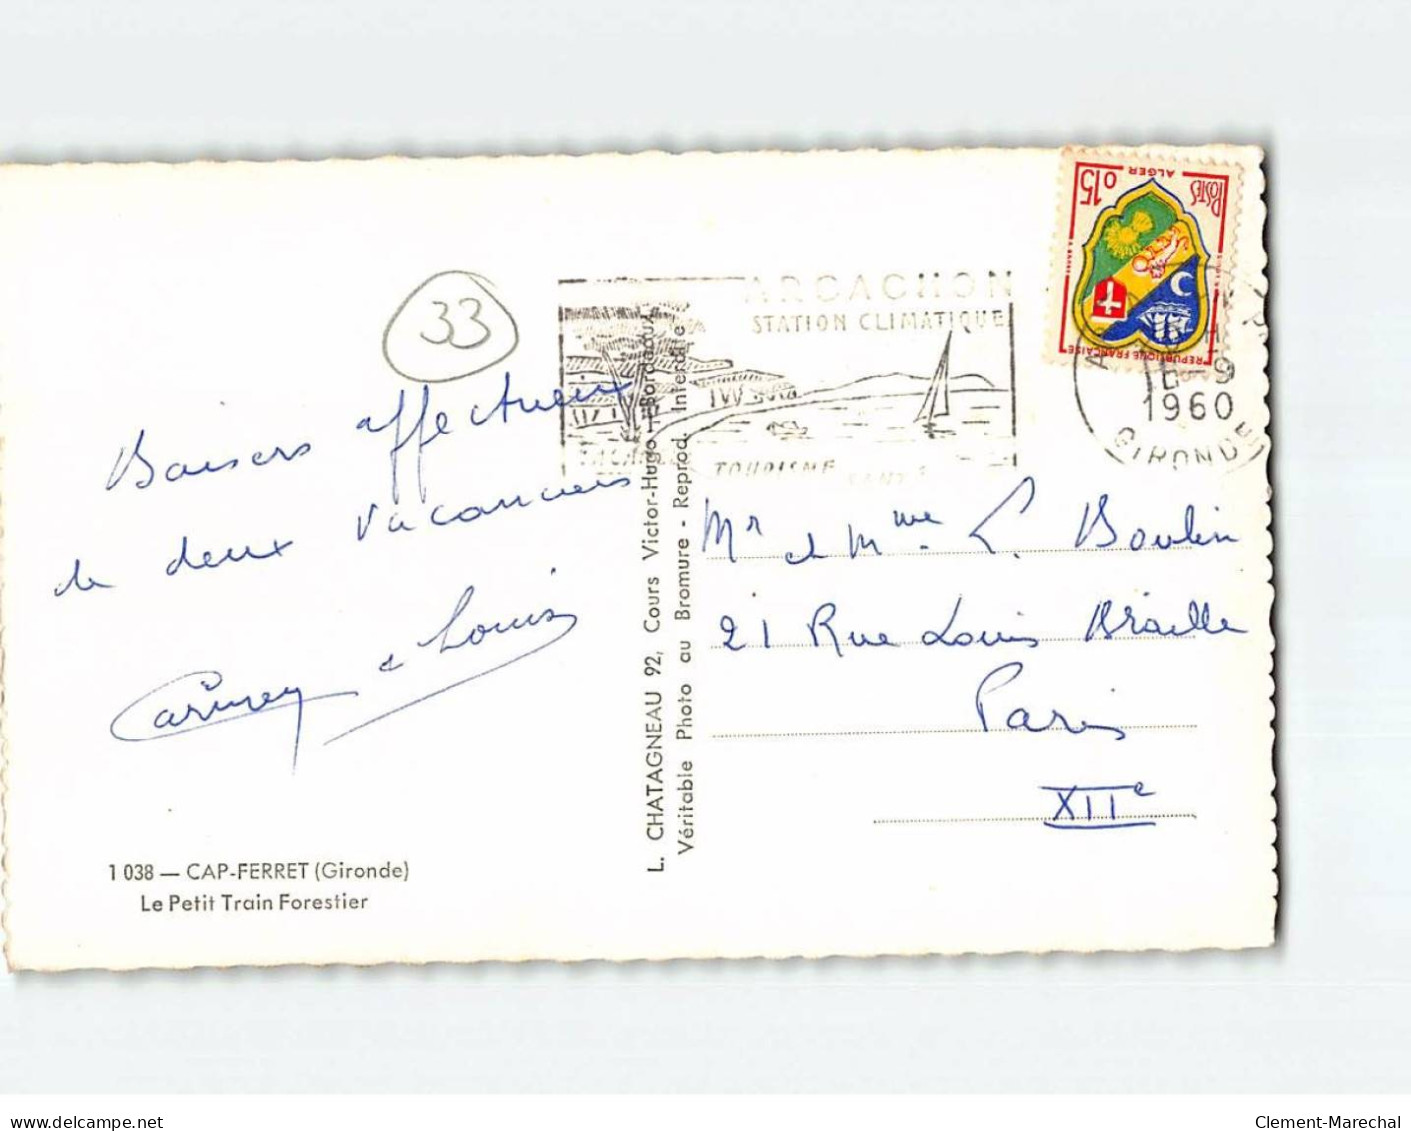 33
Baisers affectueux
de deux vacanciers
Carmen et Louis
1 038 — CAP-FERRET (Gironde)
Le Petit Train Forestier
L. CHATAGNEAU 92, Cours Victor-Hugo - Bordeaux
Véritable Photo au Bromure - Reprod. Interdite
ARCACHON
STATION CLIMATIQUE
TOURISME
0,15
ALGER
POSTES
REPUBLIQUE FRANÇAISE
-9
1960
GIRONDE
Mr et Mme L. Boulin
21 Rue Louis Braille
Paris
XIIe
www.delcampe.net
Clement-Marechal